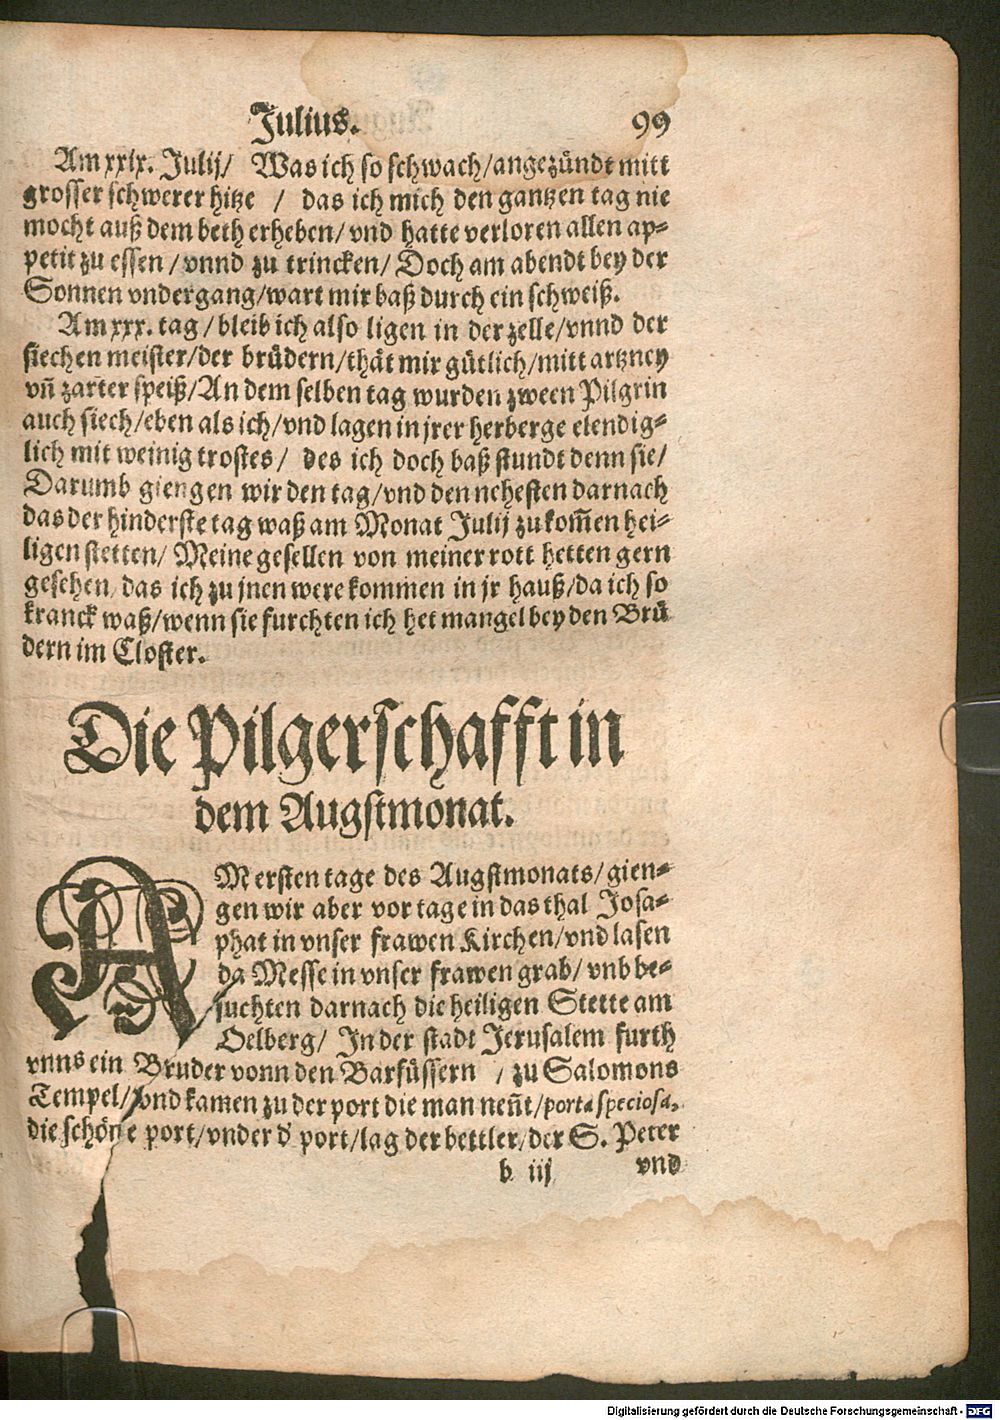 Julius. 99
Am xxix. Julij/ Was ich so schwach/angezündt mitt
grosser schwerer hitze / das ich mich den gantzen tag nie
mocht auß dem beth erheben/vnd hatte verloren allen ap⸗
petit zu essen/vnnd zu trincken/Doch am abendt bey der
Sonnen vndergang/wart mir baß durch ein schweiß.
Am xxx. tag/bleib ich also ligen in der zelle/vnnd der
siechen meister/der brüdern/thät mir gütlich/mitt artzney
vñ zarter speiß/An dem selben tag wurden zween Pilgrin
auch siech/eben als ich/vnd lagen in jrer herberge elendig⸗
lich mit weinig trostes/ des ich doch baß stundt denn sie/
Darumb giengen wir den tag/vnd den nehesten darnach
das der hinderste tag waß am Monat Julij zu kom̃en hei⸗
ligen stetten/Meine gesellen von meiner rott hetten gern
gesehen/das ich zu jnen were kommen in jr hauß/da ich so
kranck waß/wenn sie furchten ich het mangel bey den Brü
dern im Closter.
Die Pilgerschafft in
dem Augstmonat.
AM ersten tage des Augstmonats/gien⸗
gen wir aber vor tage in das thal Josa⸗
phat in vnser frawen Kirchen/vnd lasen
da Messe in vnser frawen grab/vnb be⸗
suchten darnach die heiligen Stette am
Oelberg/ In der stadt Jerusalem furth
vnns ein Bruder vonn den Barfüssern / zu Salomons
Tempel/vnd kamen zu der port die man neñt/porta speciosa,
die schöne port/vnder d' port/lag der bettler/der S. Peter
b iij vnd
Digitalisierung gefördert durch die Deutsche Forschungsgemeinschaft - DFG